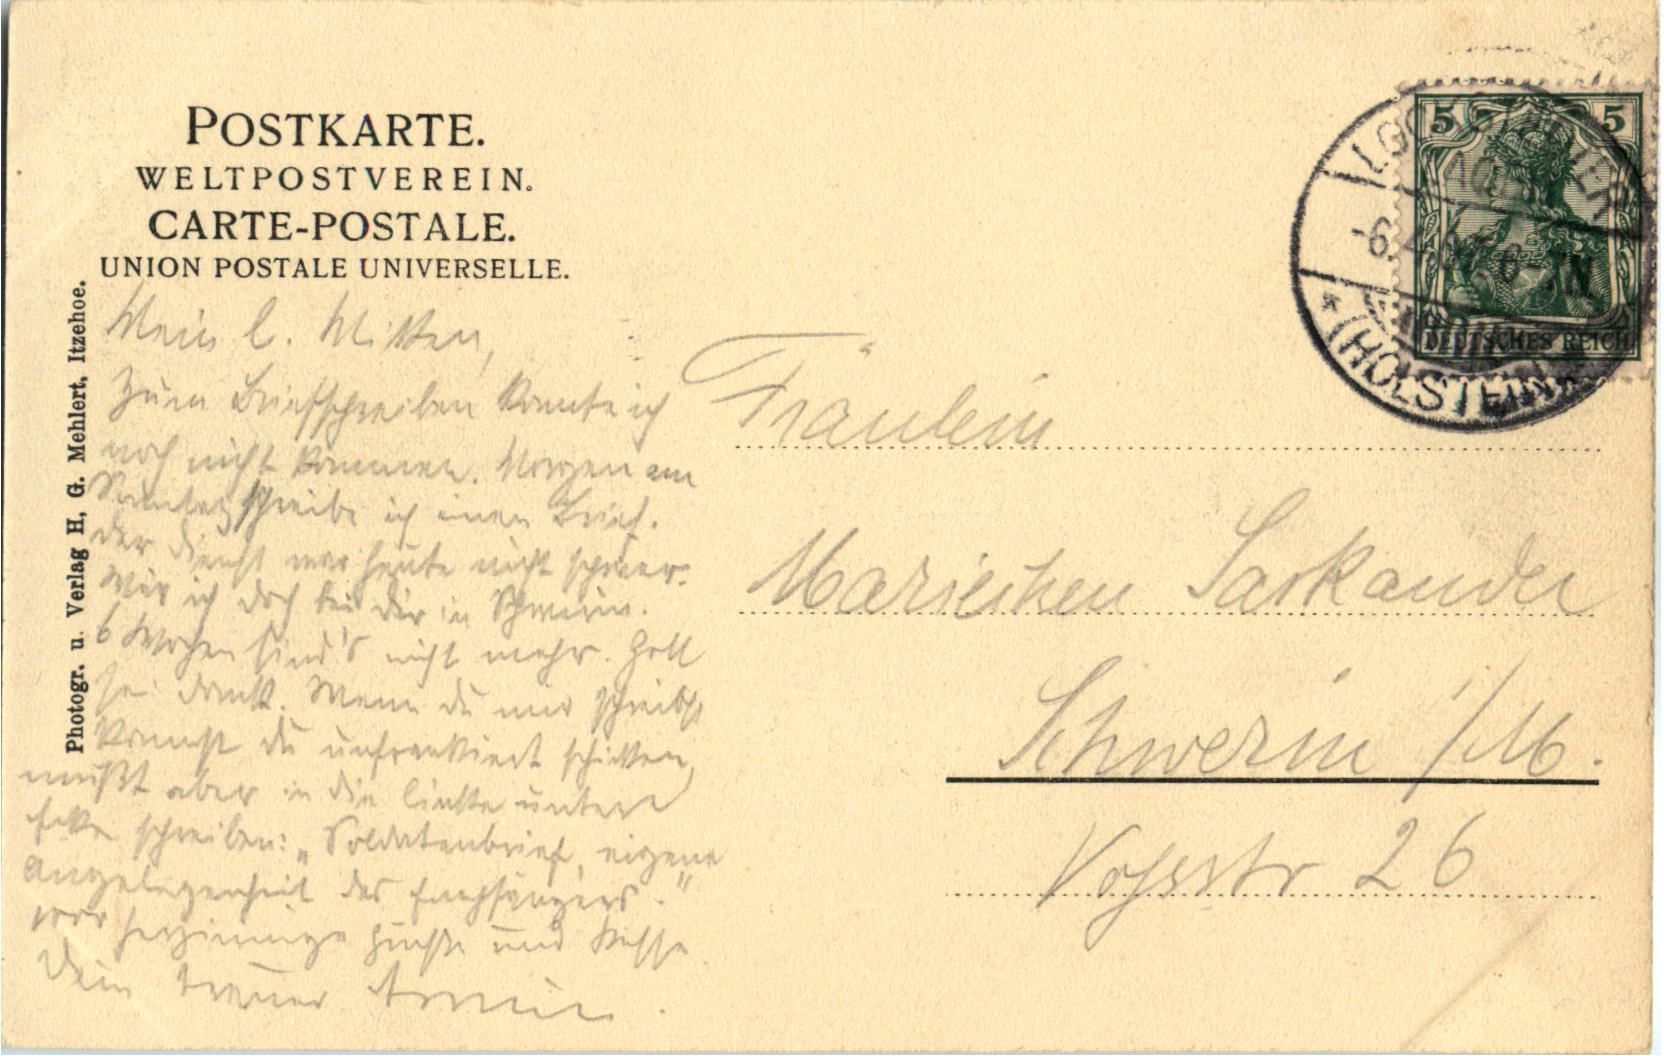 POSTKARTE.
WELTPOSTVEREIN.
CARTE-POSTALE.
UNION POSTALE UNIVERSELLE.
Photogr. u. Verlag H, G. Mehlert, Itzehoe.
5 5
DEUTSCHES REICH
(HOLSTEIN)
Mein l.
Zum Briefschreiben konnte ich
noch nicht kommen. Morgen am
Sonntag schreibe ich einen Brief.
Der Dienst war heute nicht schwer.
Wär ich doch bei Dir in Schwerin.
6 Wochen sind's nicht mehr. Gott
sei Dank. Wenn Du mir schreibst
kannst Du unfrankiert schicken,
mußt aber in die linke untere
Ecke schreiben: „Soldatenbrief, eigene
Angelegenheit des Empfängers."
herzinnige Grüße und Küsse
Dein treuer Armin.
Fräulein
Mariechen Sarkander
Schwerin i/M.
Vossstr 26